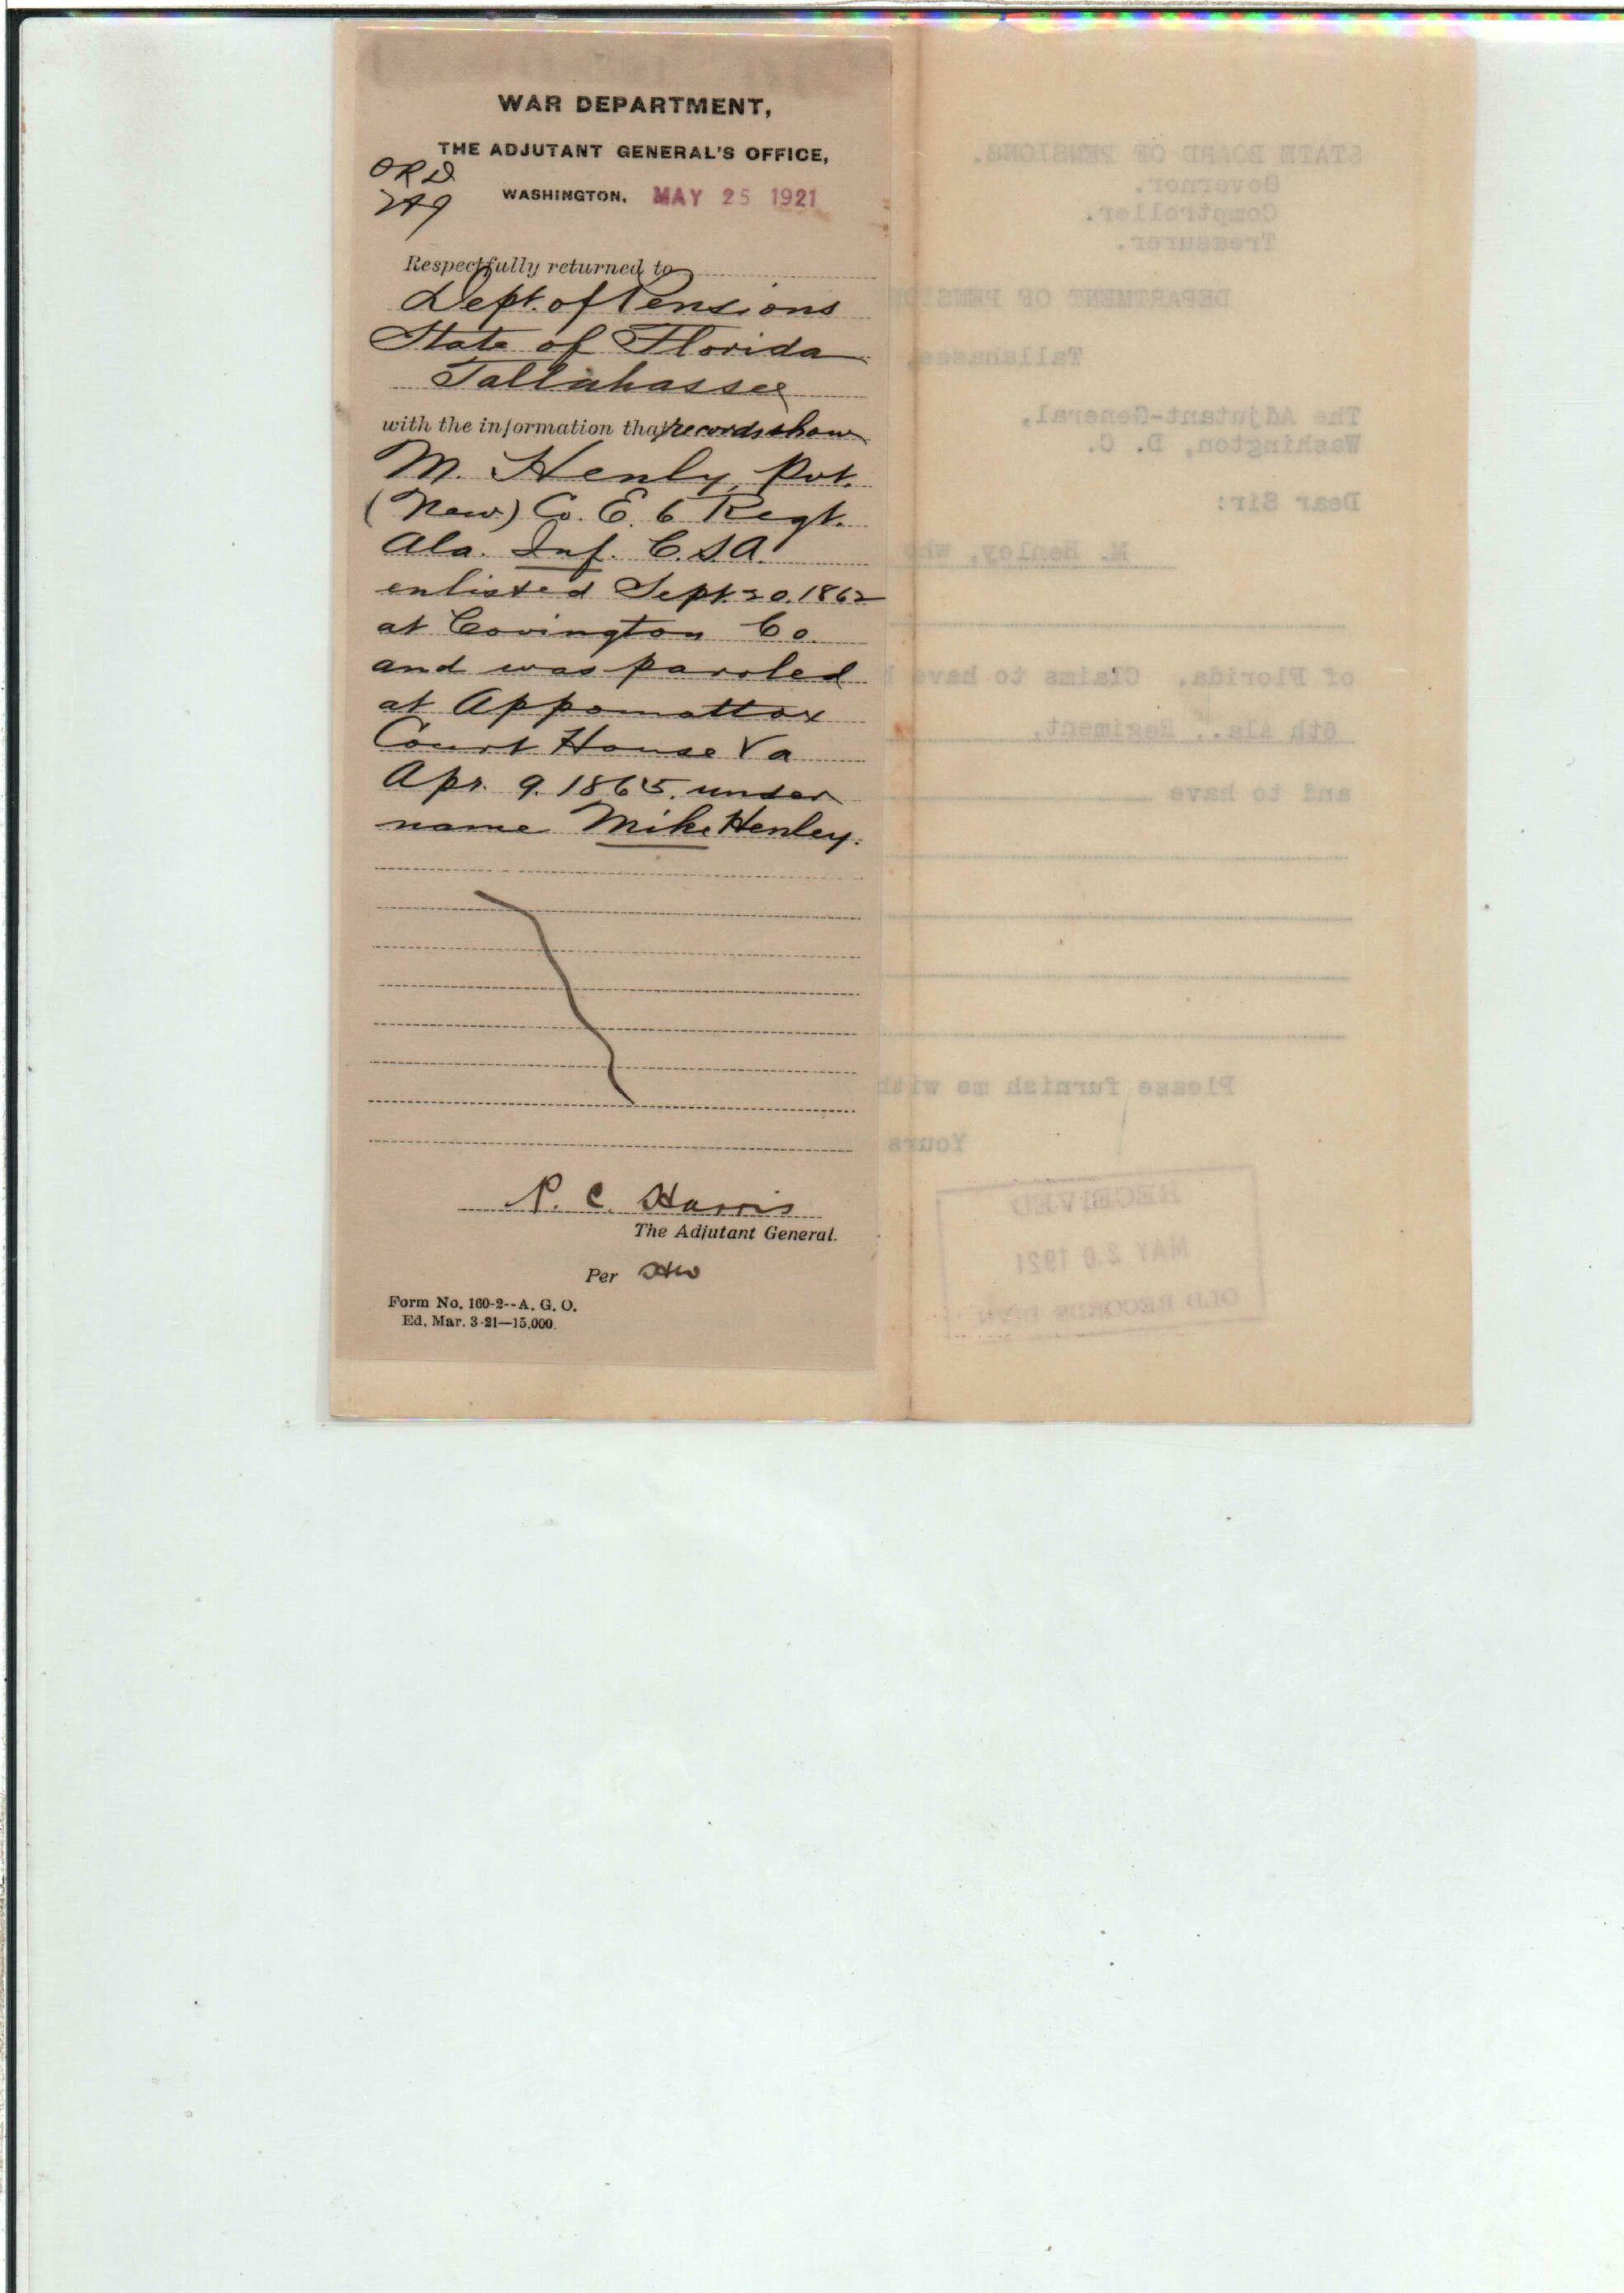 WAR DEPARTMENT,
THE ADJUTANT GENERAL'S OFFICE,
ORD
WASHINGTON, MAY 25 1921
Respectfully returned to
Dept. of Pensions
State of Florida
Tallahassee
with the information that records show
M. Henly, Pvt.
(New) Co. E. 6 Regt.
Ala. Inf. C.S.A.
enlisted Sept. 20. 1862
at Covington Co.
and was paroled
at Appomattox
Court House Va
Apr. 9. 1865. under
name Mike Henley.
P. C. Harris
The Adjutant General.
Per
Form No. 160-2--A. G. O.
Ed. Mar. 3-21—15,000.
STATE BOARD OF PENSIONS.
Governor.
Comptroller.
Treasurer.
DEPARTMENT OF PENSIO
Tallahassee,
The Adjutant-General,
Washington, D. C.
Dear Sir:
M. Henley, who
of Florida. Claims to have
6th Ala., Regiment,
and to have
Please furnish me with
Yours
RECEIVED
MAY 20 1921
OLD RECORDS DIV.